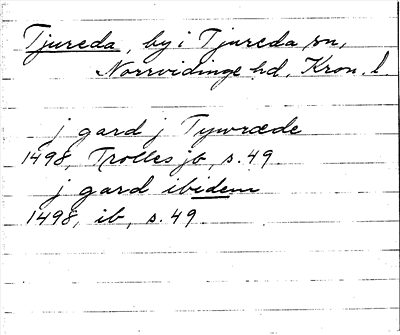 Tjureda, by i Tjureda sn,
Norrvidinge hd, Kron. l.
j gard j Tywræde
1498, Trolles jb, s. 49
j gard ibidem
1498, ib, s. 49